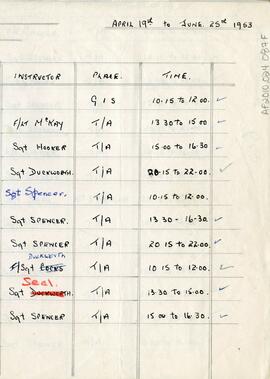 APRIL 19th to JUNE. 25th 1953
INSTRUCTOR PLACE. TIME.
G I S 10.15 to 12.00.
F/LT McKAY T/A 13.30 to 15.00
Sgt HOOKER T/A 15.00 to 16.30
Sgt DUCKWORTH. T/A 20.15 to 22.00.
Sgt Spencer. T/A 10.15 to 12.00.
Sgt SPENCER. T/A 13.30 - 16.30.
Sgt SPENCER T/A 20.15 to 22.00.
DUCKWORTH
F/Sgt T/A 10.15 to 12.00
Seal.
Sgt DUCKWORTH. T/A 13.30 to 15.00.
Sgt SPENCER T/A 15.00 to 16.30.
AF2010.024.087F